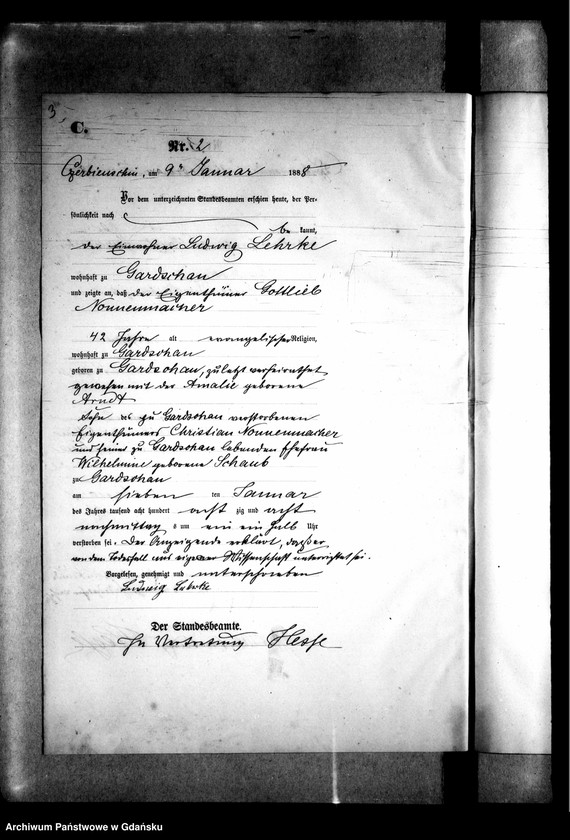 3.
C.
Nr. 2
Czerbienschin, am 9ᵗ Januar 1888
Vor dem unterzeichneten Standesbeamten erschien heute, der Per-
sönlichkeit nach
be kannt,
der Einwohner Ludwig Lehrke
wohnhaft zu Gardschau
und zeigte an, daß der Eigenthümer Gottlieb
Nonnenmacher
42 Jahre alt evangelischer Religion,
wohnhaft zu Gardschau
geboren zu Gardschau, zuletzt verheirathet
gewesen mit der Amalie geborene
Arndt
Sohn des zu Gardschau verstorbenen
Eigenthümers Christian Nonnenmacher
und seiner zu Gardschau lebenden Ehefrau
Wilhelmine geborene Schaub
zu Gardschau
am sieben ten Januar
des Jahres tausend acht hundert acht zig und acht
nachmittag s um ein ein halb Uhr
verstorben sei. Der Anzeigende erklärt, daß er
von dem Todesfall aus eigener Wissenschaft unterrichtet sei.
Vorgelesen, genehmigt und unterschrieben
Ludwig Lehrke
Der Standesbeamte.
In Vertretung Hesse
Archiwum Państwowe w Gdańsku